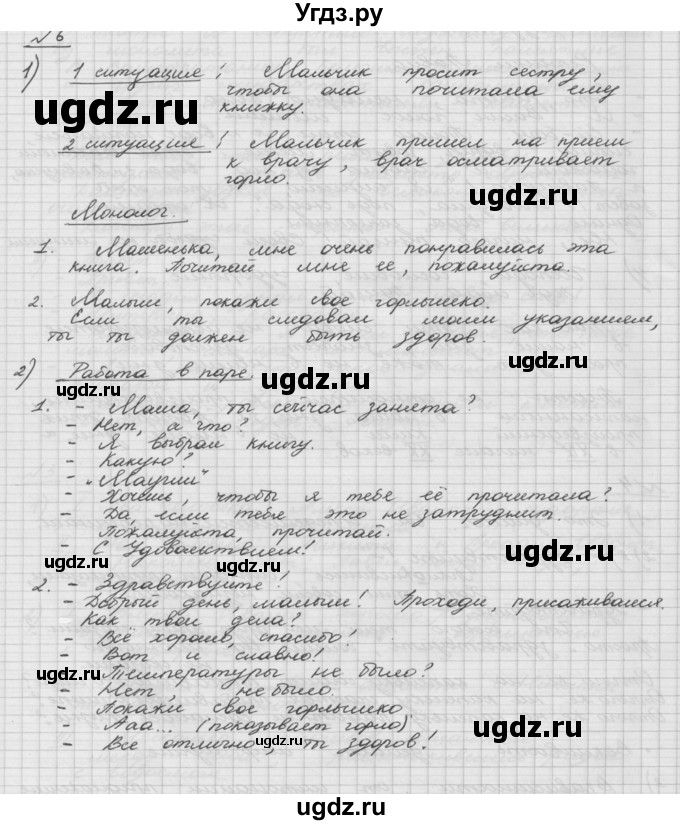 Угдз.ру
№ 6
1) 1 ситуация: Мальчик просит сестру,
чтобы она почитала ему
книжку.
ugdz.ru
2 ситуация: Мальчик пришел на прием
к врачу, врач осматривает
горло.
ugdz.ru
Монолог.
1. Машенька, мне очень понравилась эта
книга. Почитай мне ее, пожалуйста.
2. Малыш, покажи свое горлышко.
Если ты следовал моим указанием,
то ты должен быть здоров.
ugdz.ru
2) Работа в паре.
ugdz.ru
1. - Маша, ты сейчас занята?
- Нет, а что?
- Я выбрал книгу.
- Какую?
ugdz.ru
- "Маугли"
- Хочешь, чтобы я тебе её прочитала?
- Да, если тебя это не затруднит.
Пожалуйста, прочитай.
- С удовольствием!
ugdz.ru
2. - Здравствуйте!
- Добрый день, малыш! Проходи, присаживайся.
Как твои дела?
- Всё хорошо, спасибо!
ugdz.ru
- Вот и славно!
- Температуры не было?
ugdz.ru
- Нет, не было.
- Покажи свое горлышко
- Ааа... (показывает горло)
- Все отлично, ты здоров!
ugdz.ru
ugdz.ru
ugdz.ru